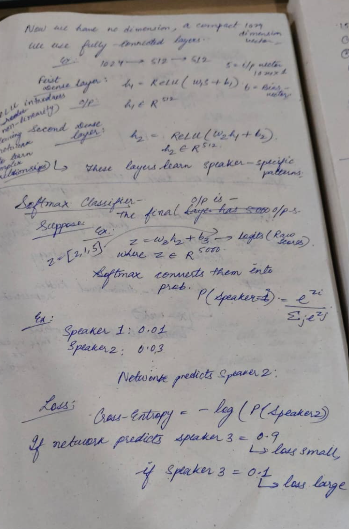 Now we have no dimension, a compact 1024 dimension vector
we use fully-connected layers.
1024 → 512 → 512
S = i/p vector 1024x1
First dense layer: h₁ = ReLU (w₁s + b₁) b = Bias vector
o/p: h₁ ∈ R⁵¹²
ReLU introduces non linearity
Second dense layer: h₂ = ReLU (w₂h₁ + b₂)
h₂ ∈ R⁵¹²
↳ These layers learn speaker-specific patterns
Softmax Classifier-
The final o/p is - 5000 o/p's
Suppose
Ex:
z = [2,1,5] z = w₃h₂ + b₃ → logits (Raw scores).
where z ∈ R⁵⁰⁰⁰
Softmax converts them into prob.
P(Speaker=i) = e^zi / Σj e^zj
Ex:
Speaker 1: 0.01
Speaker 2: 0.03
Network predicts Speaker 2:
Loss:
Cross-Entropy = -log (P(Speaker2)
If network predicts speaker 3 = 0.9
↳ loss small,
if Speaker 3 = 0.1
↳ loss large